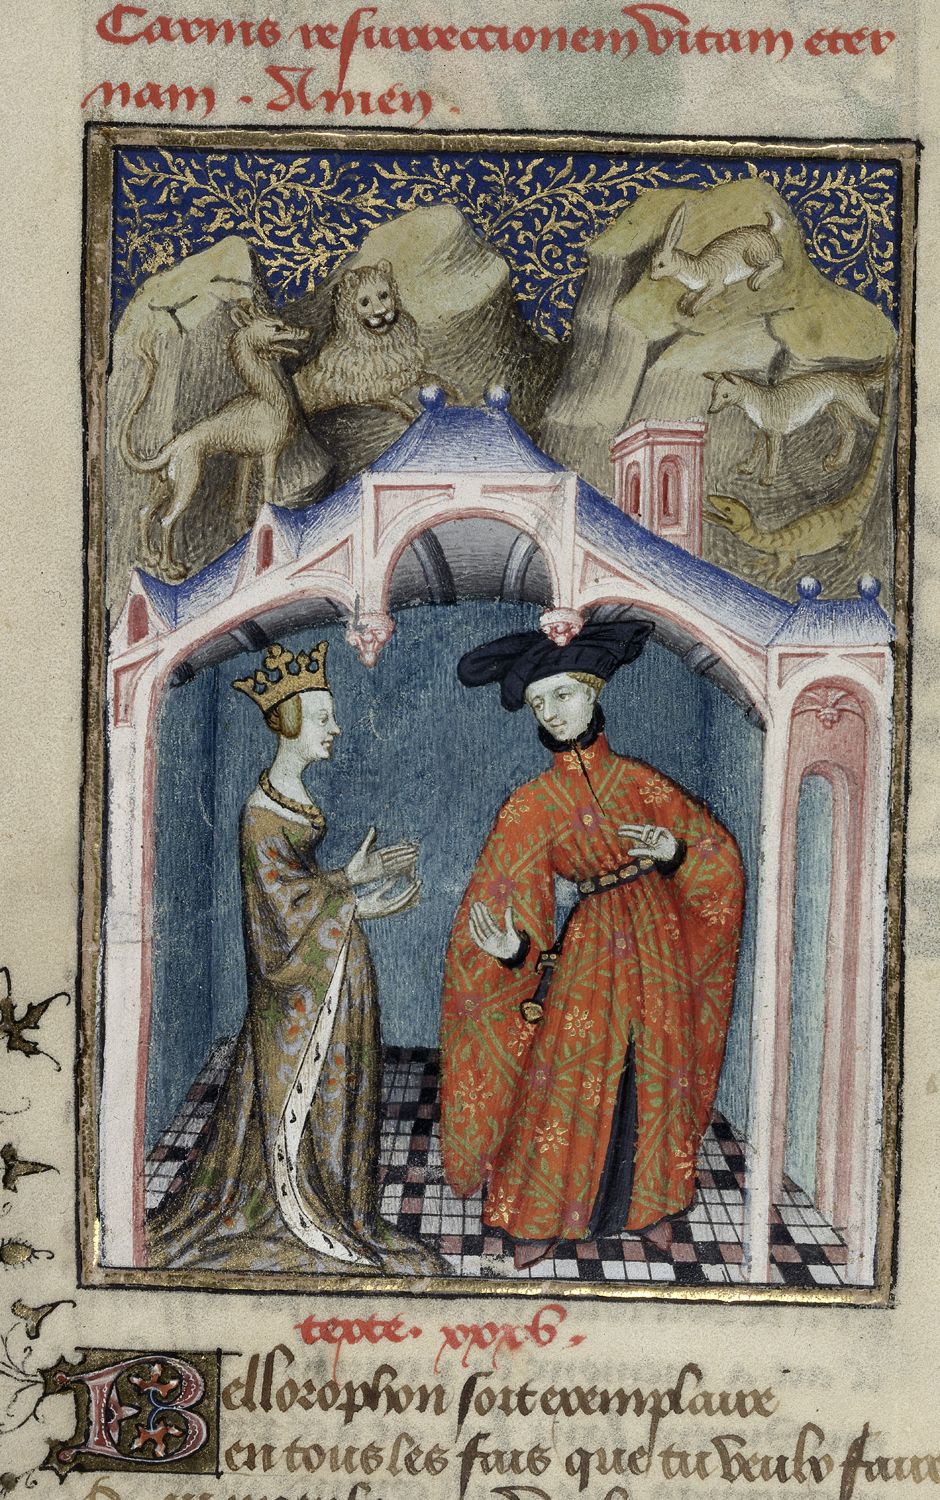 Carnis resurreccionem vitam eter
nam . Amen .
texte . xxxv .
Bellorophon soit exemplaire
en tous les fais que tu veulx faire